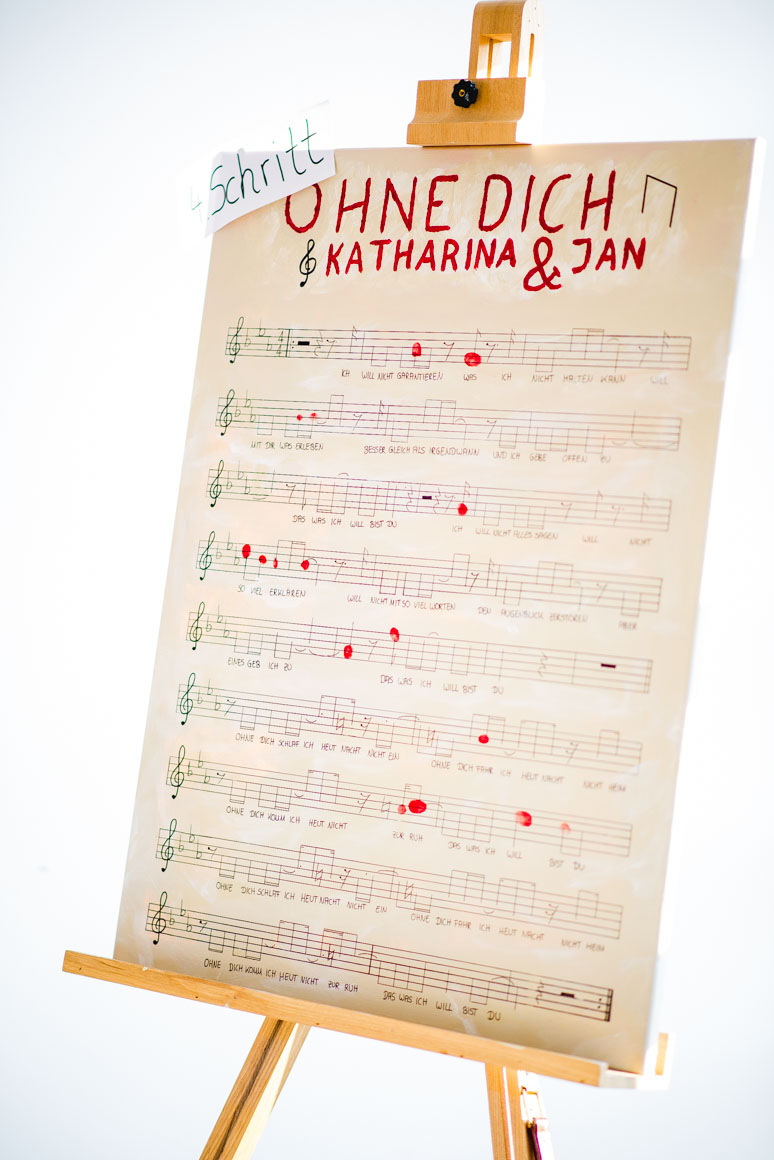 4. Schritt
OHNE DICH
KATHARINA & JAN
ICH WILL NICHT GARANTIEREN WAS ICH NICHT HALTEN KANN WILL
MIT DIR WAS ERLEBEN BESSER GLEICH ALS IRGENDWANN UND ICH GEBE OFFEN ZU
DAS WAS ICH WILL BIST DU ICH WILL NICHT ALLES SAGEN WILL NICHT
SO VIEL ERKLÄREN WILL NICHT MIT SO VIEL WORTEN DEN AUGENBLICK ZERSTÖREN ABER
EINES GEB ICH ZU DAS WAS ICH WILL BIST DU
OHNE DICH SCHLAF ICH HEUT NACHT NICHT EIN OHNE DICH FAHR ICH HEUT NACHT NICHT HEIM
OHNE DICH KOMM ICH HEUT NICHT ZUR RUH DAS WAS ICH WILL BIST DU
OHNE DICH SCHLAF ICH HEUT NACHT NICHT EIN OHNE DICH FAHR ICH HEUT NACHT NICHT HEIM
OHNE DICH KOMM ICH HEUT NICHT ZUR RUH DAS WAS ICH WILL BIST DU